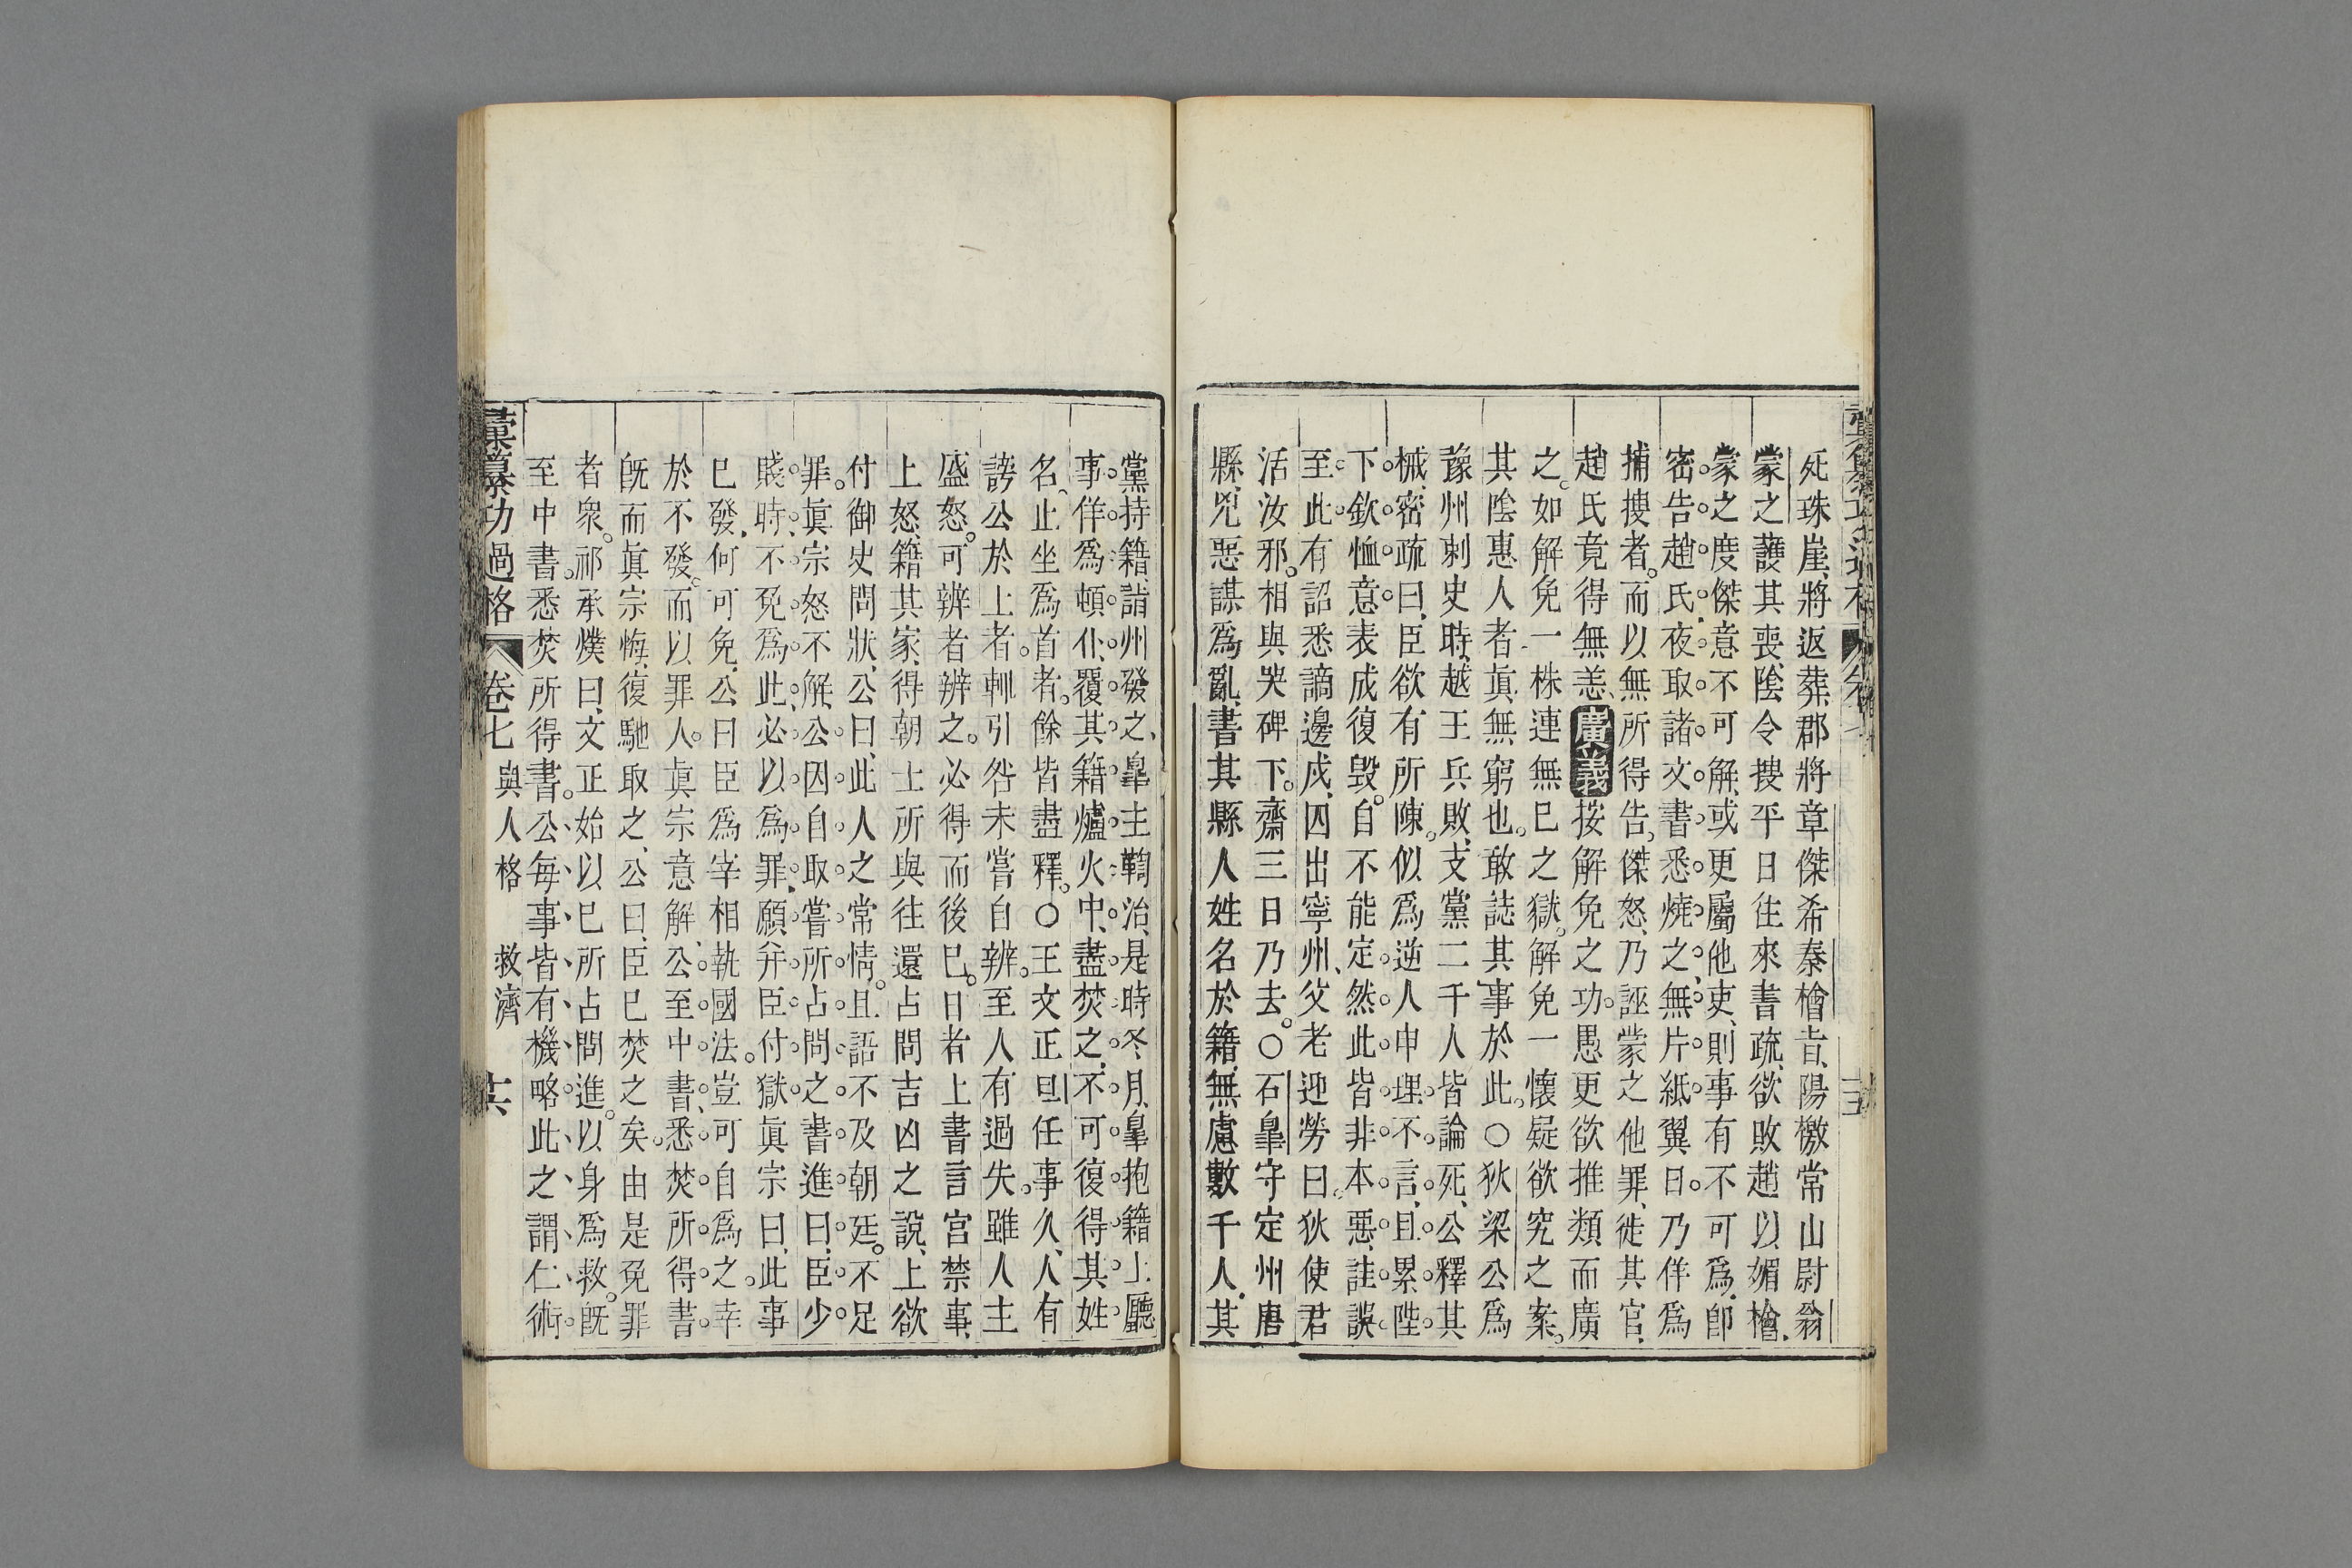 死珠崖將返葬郡將章傑希秦檜旨陽檄常山尉翁
蒙之護其喪陰令搜平日往來書疏欲敗趙以媚檜
蒙之度傑意不可解或更屬他吏則事有不可爲卽
密告趙氏夜取諸文書悉燒之無片紙翼日乃佯爲
捕搜者而以無所得告傑怒乃誣蒙之他罪徙其官
趙氏竟得無恙廣義按解免之功愚更欲推類而廣
之如解免一株連無巳之獄解免一懷疑欲究之案
其陰惠人者眞無窮也敢誌其事於此○狄梁公爲
豫州刺史時越王兵敗支黨二千人皆論死公釋其
械密疏曰臣欲有所陳似爲逆人申理不言且累陛
下欽恤意表成復毀自不能定然此皆非本惡詿誤
至此有詔悉謫邊戍囚出寧州父老迎勞曰狄使君
活汝邪相與哭碑下齋三日乃去○石皐守定州唐
縣兇惡謀爲亂書其縣人姓名於籍無慮數千人其
黨持籍詣州發之皐主鞫治是時冬月皐抱籍上廳
事佯爲頓仆覆其籍爐火中盡焚之不可復得其姓
名止坐爲首者餘皆盡釋○王文正旦任事久人有
謗公於上者輒引咎未嘗自辨至人有過失雖人主
盛怒可辨者辨之必得而後巳日者上書言宫禁事
上怒籍其家得朝士所與往還占問吉凶之說上欲
付御史問狀公曰此人之常情且語不及朝廷不足
罪眞宗怒不解公因自取嘗所占問之書進曰臣少
賤時不免爲此必以爲罪願幷臣付獄眞宗曰此事
巳發何可免公曰臣爲宰相執國法豈可自爲之幸
於不發而以罪人眞宗意解公至中書悉焚所得書
旣而眞宗悔復馳取之公曰臣巳焚之矣由是免罪
者衆祁承㸁曰文正始以巳所占問進以身爲救旣
至中書悉焚所得書公每事皆有機略此之謂仁術
彙纂功過格 卷七 與人格 救濟 十六